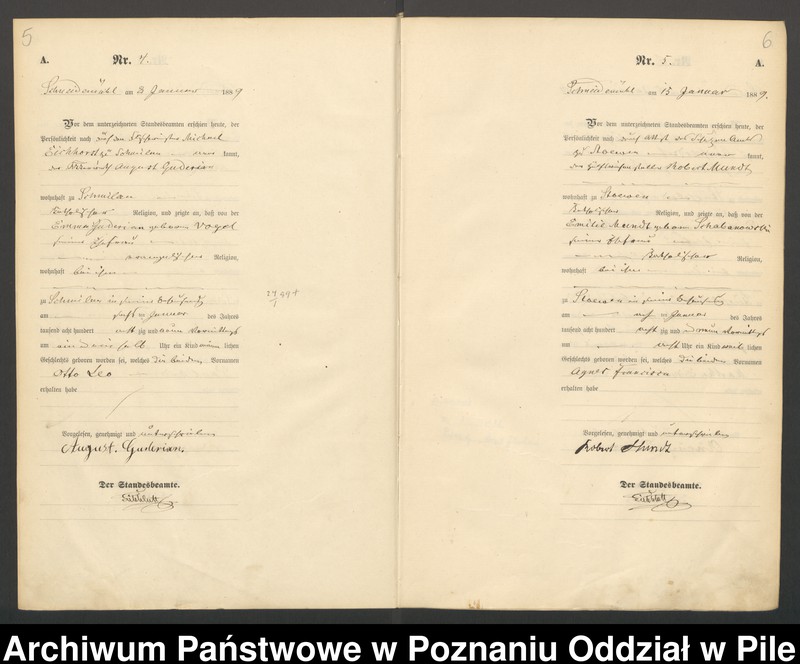 5
A. Nr. 4.
Schneidemühl am 3 Januar 1889
Vor dem unterzeichneten Standesbeamten erschien heute, der
Persönlichkeit nach Michael
Eichhorst zu Schmilau kannt,
der August Guderian
wohnhaft zu Schmilau
katholischer Religion, und zeigte an, daß von der
Emma Guderian geborene Vogel
seiner Ehefrau
evangelischer Religion,
wohnhaft bei ihm
zu Schmilau in seiner Behausung
am Januar des Jahres
tausend acht hundert acht zig und neun Vormittags
um ein Uhr ein Kind männ lichen
Geschlechts geboren worden sei, welches die beiden Vornamen
Otto Leo
erhalten habe
Vorgelesen, genehmigt und unterschrieben
August Guderian.
Der Standesbeamte.
6
Nr. 5. A.
Schneidemühl am 15 Januar 1889.
Vor dem unterzeichneten Standesbeamten erschien heute, der
Persönlichkeit nach durch Attest des Schulzen Amts
zu Stoewen kannt,
der Robert Mundt
wohnhaft zu Stoewen
katholischer Religion, und zeigte an, daß von der
Emilie Mundt geborene Schabanowski
seiner Ehefrau
katholischer Religion,
wohnhaft bei ihm
zu Stoewen in seiner Behausung
am acht Januar des Jahres
tausend acht hundert acht zig und neun Vormittags
um acht Uhr ein Kind weib lichen
Geschlechts geboren worden sei, welches die beiden Vornamen
Agnes
erhalten habe
Vorgelesen, genehmigt und unterschrieben
Robert Mundt
Der Standesbeamte.
Archiwum Państwowe w Poznaniu Oddział w Pile